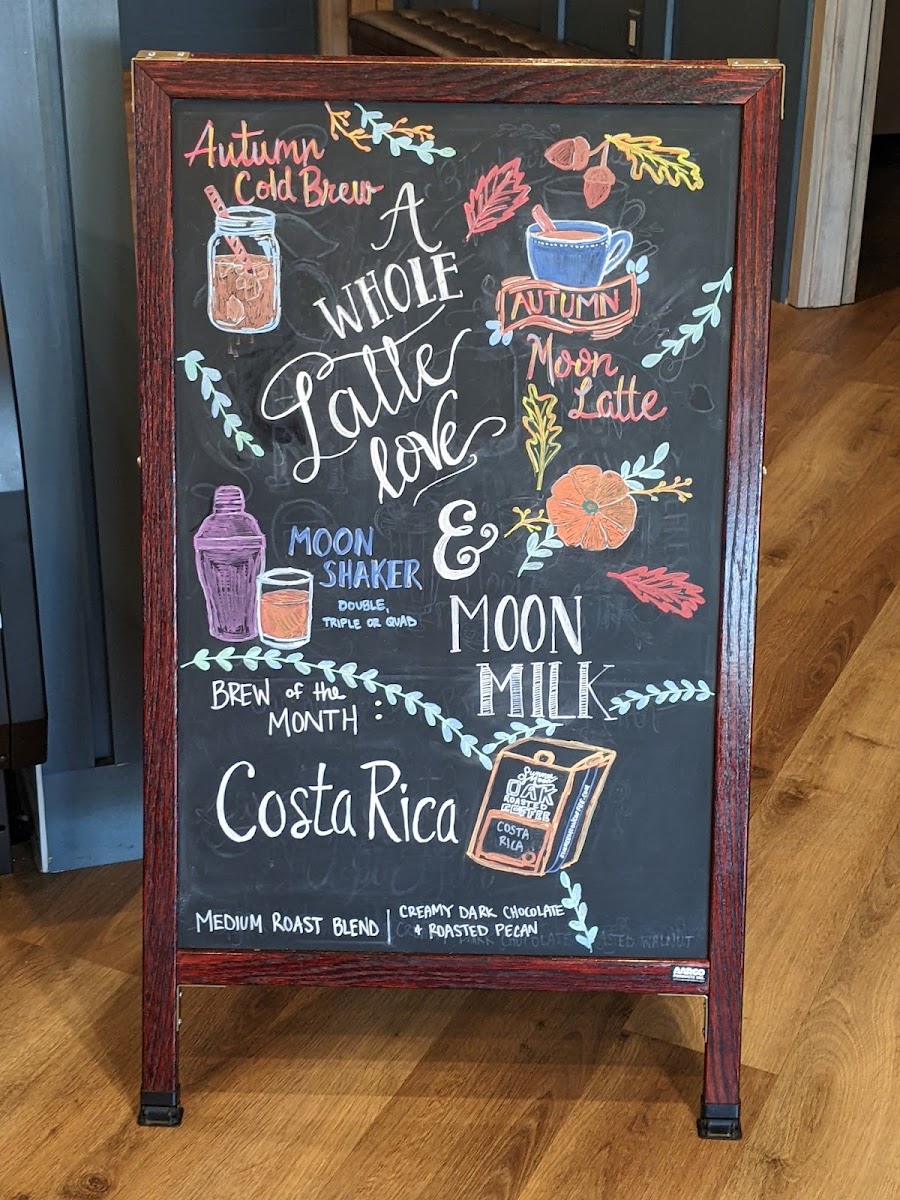 Autumn
Cold Brew
A
WHOLE
Latte
love
&
MOON
MILK
AUTUMN
Moon
Latte
MOON
SHAKER
DOUBLE,
TRIPLE OR QUAD
BREW of the
MONTH:
Costa Rica
OAK
ROASTED
COFFEE
COSTA
RICA
MEDIUM ROAST BLEND
CREAMY DARK CHOCOLATE
& ROASTED PECAN
AARCO